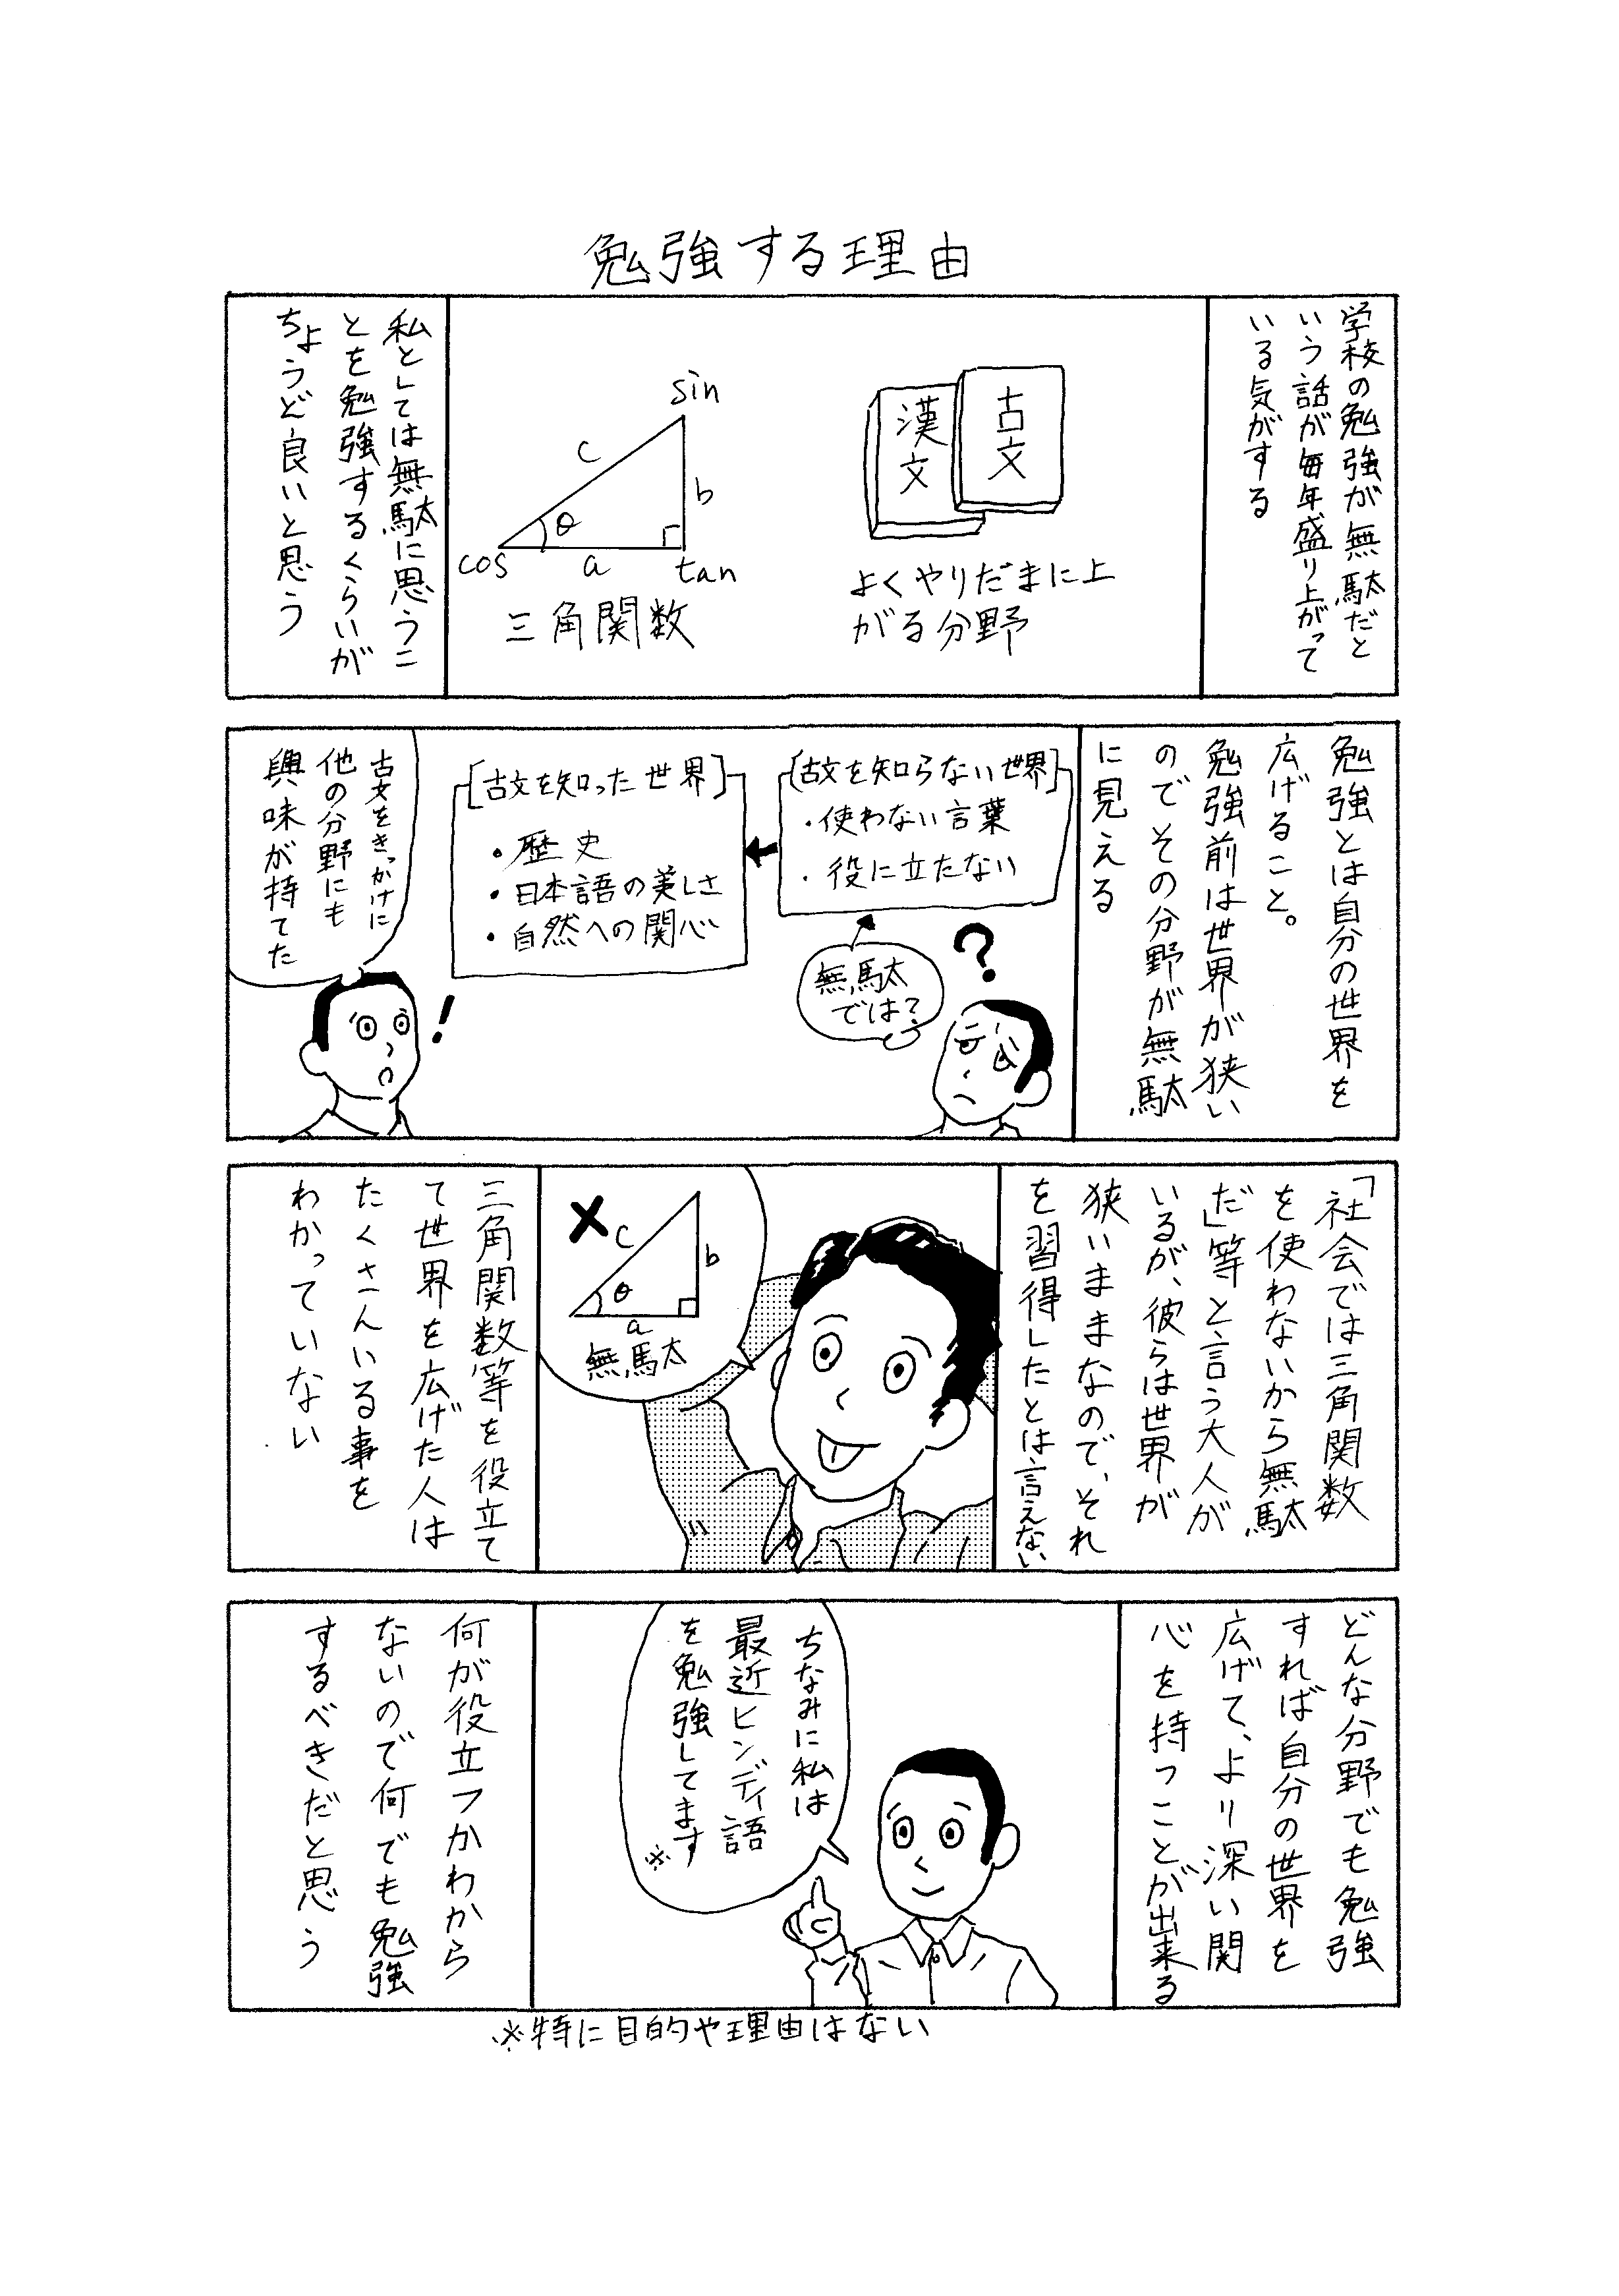 勉強する理由
学校の勉強が無駄だと
いう話が毎年盛り上がって
いる気がする
古文
漢文
よくやりだまに上
がる分野
sin
c
b
θ
cos
a
tan
三角関数
私としては無駄に思うこ
とを勉強するくらいが
ちょうど良いと思う
勉強とは自分の世界を
広げること。
勉強前は世界が狭い
のでその分野が無駄
に見える
[古文を知らない世界]
・使わない言葉
・役に立たない
?
無駄
では?
[古文を知った世界]
・歴史
・日本語の美しさ
・自然への関心
!
古文をきっかけに
他の分野にも
興味が持てた
「社会では三角関数
を使わないから無駄
だ」等と言う大人が
いるが、彼らは世界が
狭いままなので、それ
を習得したとは言えない
×
c
b
θ
a
無駄
三角関数等を役立て
て世界を広げた人は
たくさんいる事を
わかっていない
どんな分野でも勉強
すれば自分の世界を
広げて、より深い関
心を持つことが出来る
ちなみに私は
最近ヒンディ語
を勉強してます
※
何が役立つかわから
ないので何でも勉強
するべきだと思う
※特に目的や理由はない